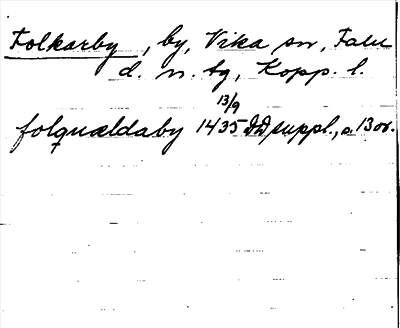 Folkarby, by, Vika sn, Falu
d. n. tg, Kopp. l.
13/9
folquældaby 1435 DD suppl., a 13 or.